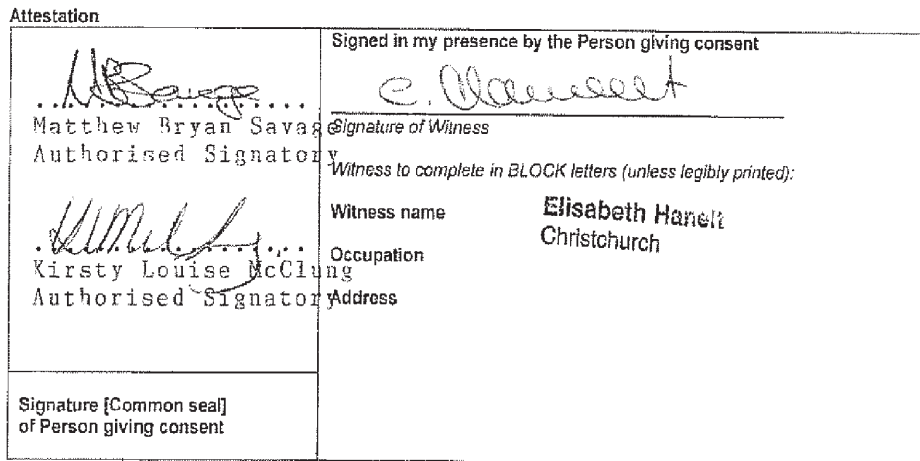 Attestation
Matthew Bryan Savage
Authorised Signatory
Kirsty Louise McClung
Authorised Signatory
Signature [Common seal]
of Person giving consent
Signed in my presence by the Person giving consent
Signature of Witness
Witness to complete in BLOCK letters (unless legibly printed):
Witness name
Elisabeth Hanelt
Christchurch
Occupation
Address